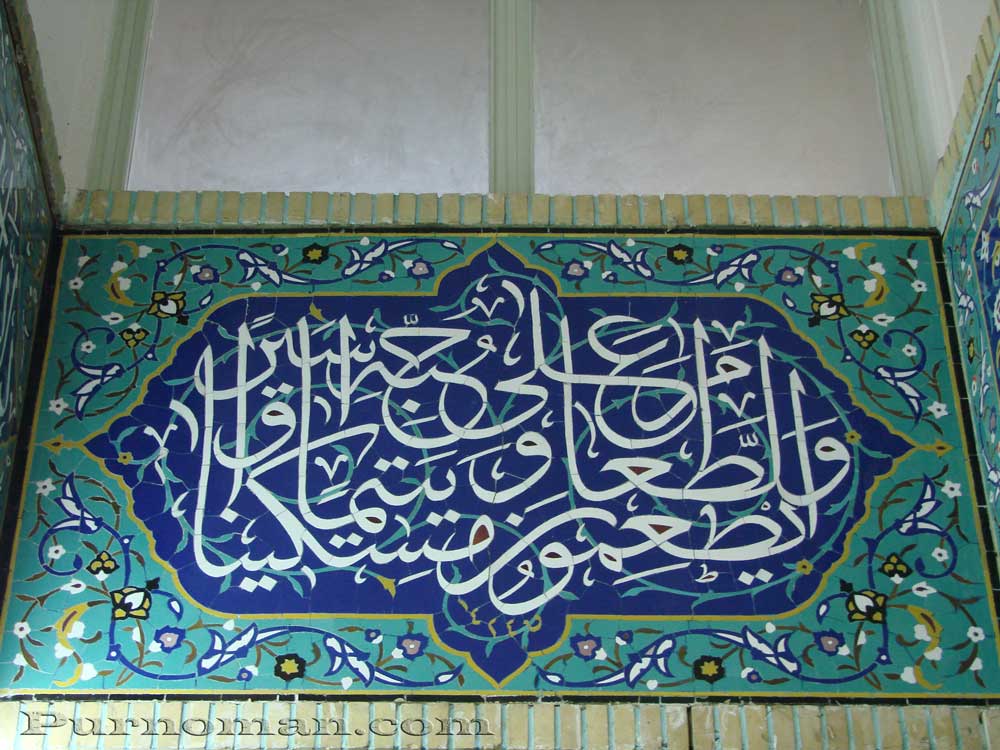 ويطعمون الطعام على حبه مسكينا ويتيما واسيرا
Purnoman.com